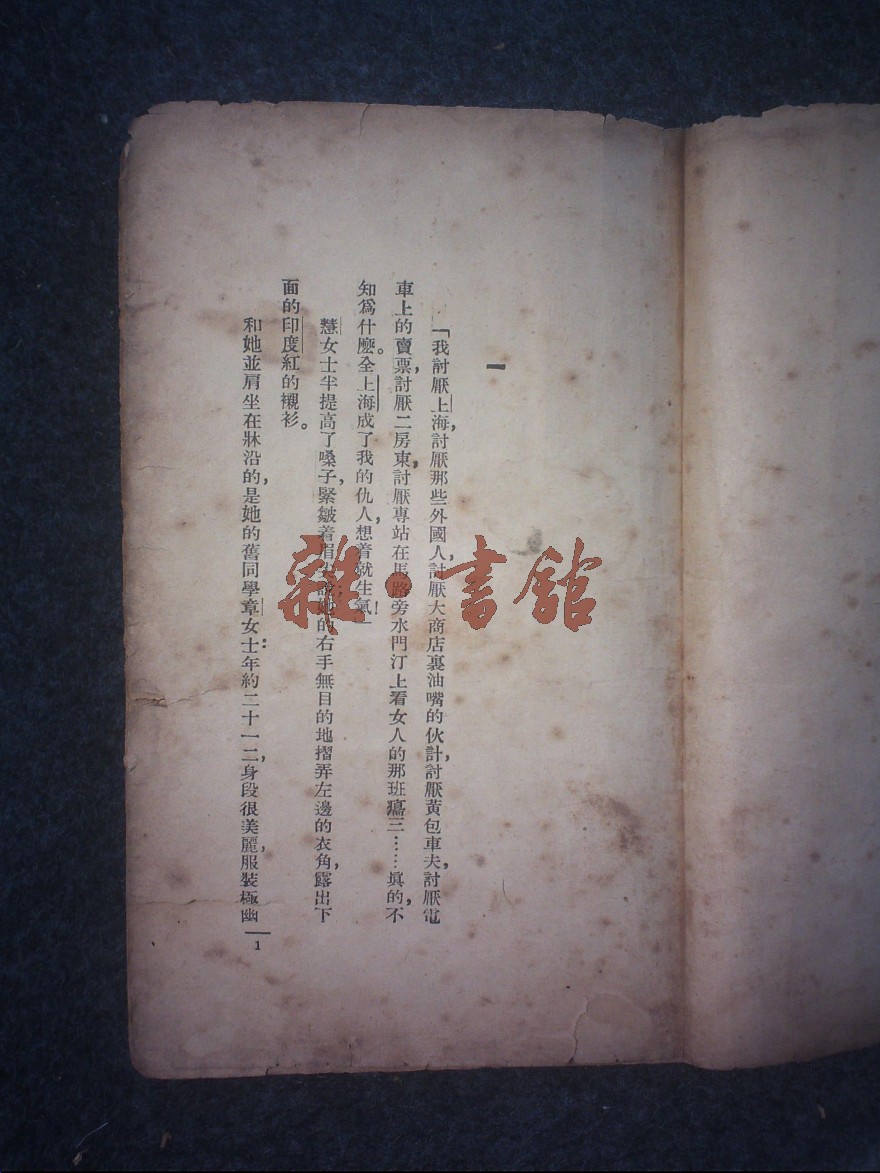 一
「我討厭上海，討厭那些外國人，討厭大商店裏油嘴的伙計，討厭黃包車夫，討厭電
車上的賣票，討厭二房東，討厭專站在馬路旁水門汀上看女人的那班癟三……眞的，不
知爲什麽。全上海成了我的仇人，想着就生氣！」
慧女士半提高了嗓子，緊皺着眉尖說；她的右手無目的地摺弄左邊的衣角，露出下
面的印度紅的襯衫。
和她並肩坐在牀沿的，是她的舊同學章女士：年約二十一二，身段很美麗，服裝極幽
1
雜·書館